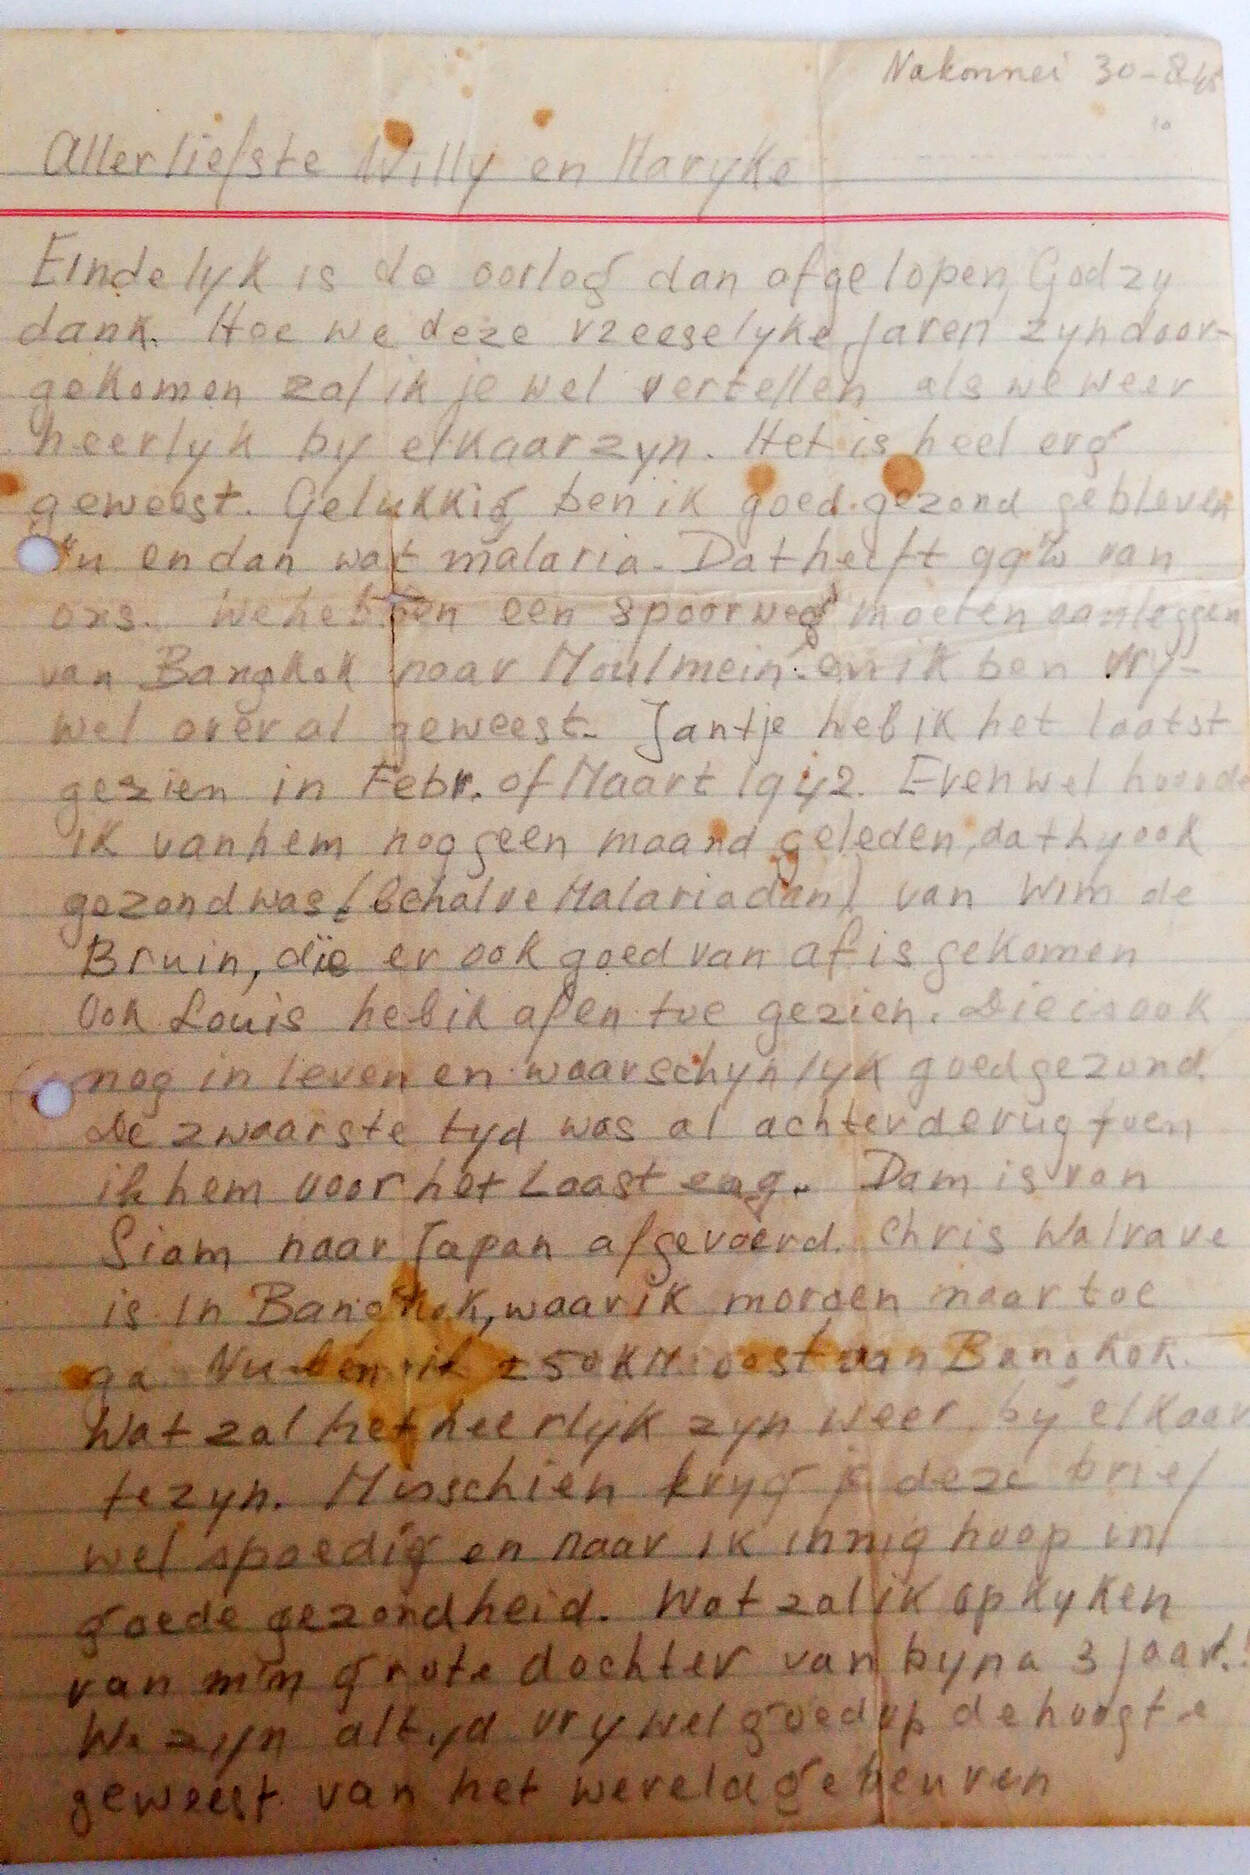 Nakonnei 30-8-45
Allerliefste Willy en Maryke
Eindelyk is de oorlog dan afgelopen, God zy
dank. Hoe we deze vreeselyke jaren zyn door-
gekomen zal ik je wel vertellen als we weer
heerlyk by elkaar zyn. Het is heel erg
geweest. Gelukkig ben ik goed gezond gebleven
nu en dan wat malaria. Dat heeft 99% van
ons. We hebben een spoorweg moeten aanleggen
van Bangkok naar Moulmein en ik ben vry-
wel overal geweest. Jantje heb ik het laatst
gezien in Febr. of Maart 1942. Evenwel hoorde
ik van hem nog geen maand geleden, dat hy ook
gezond was (behalve Malaria dan) van Wim de
Bruin, die er ook goed van af is gekomen
Ook Louis heb ik af en toe gezien. Die is ook
nog in leven en waarschynlyk goed gezond.
De zwaarste tyd was al achter de rug toen
ik hem voor het Laast zag. Dam is van
Siam naar Japan afgevoerd. Chris Walrave
is in Bangkok, waar ik morgen naar toe
ga Nu ben ik ± 50 KM oost van Bangkok.
Wat zal het heerlyk zyn weer by elkaar
te zyn. Misschien kryg je deze brief
wel spoedig en naar ik innig hoop in
goede gezondheid. Wat zal ik opkyken
van m'n grote dochter van byna 3 jaar!
We zyn altyd vrywel goed op de hoogte
geweest van het wereldgebeuren